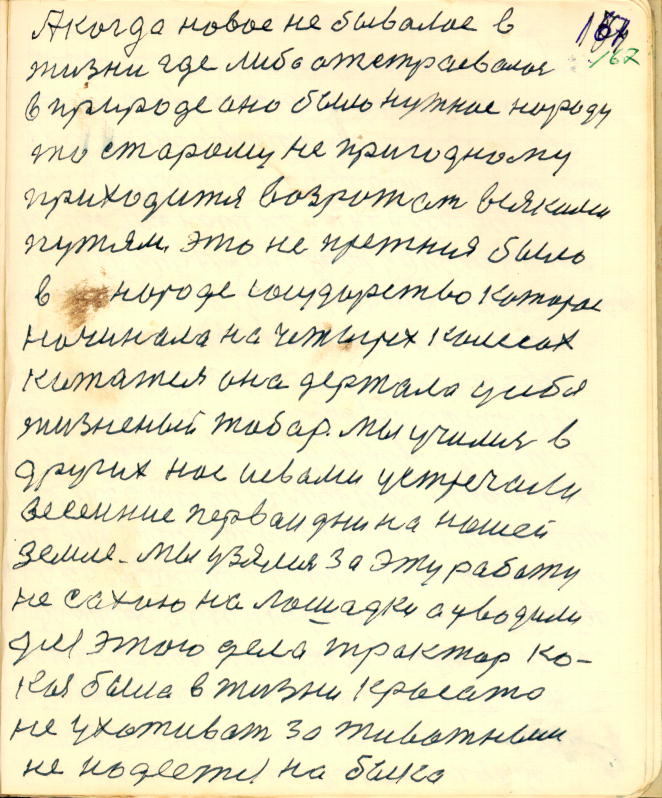 Акогда новое не бывалое в
167
жизни где либо
в природе оно было нужное народу
то старому не пригодному
приходится возрожат всякими
путям. это не прежния было
в народе государство которое
начинала на четырех колесах
кататся она держала у себя
жизненый товар. мы учился в
других нас севами устречали
весенние перваи дни на нашей
земле. мы узялися за эту работу
не сахою на лошадки а уводили
для этого дела трактор ко-
кая была в жизни красата
не ухаживат за животныи
не надеется на быка